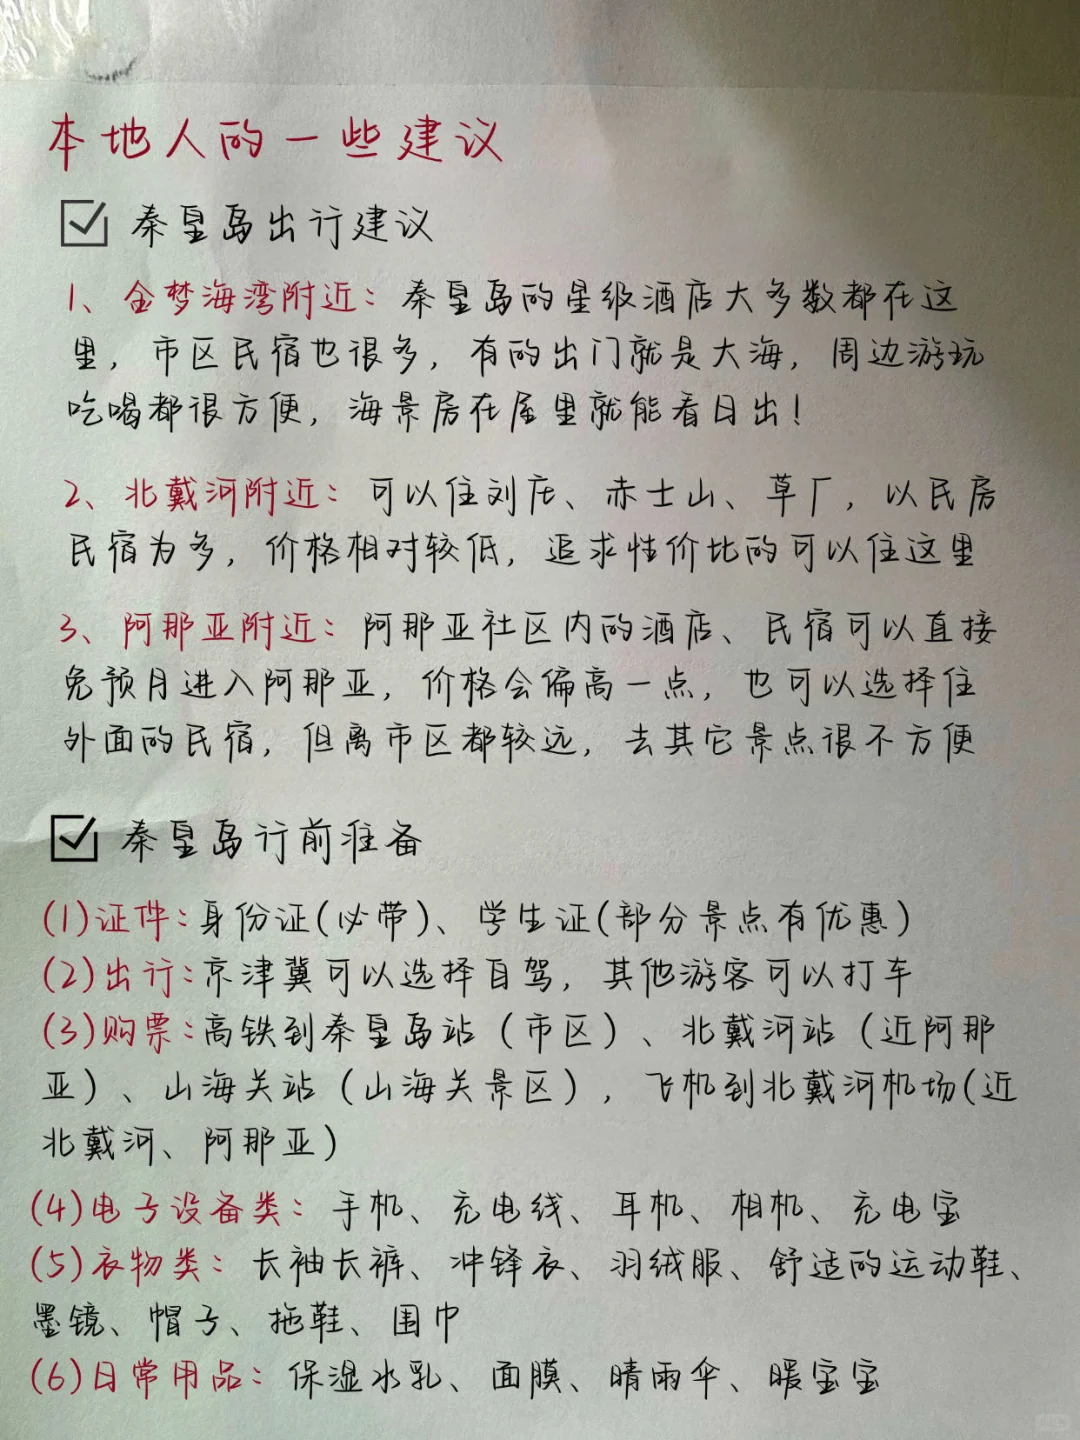 本地人的一些建议
秦皇岛出行建议
1、金梦海湾附近：秦皇岛的星级酒店大多数都在这
里，市区民宿也很多，有的出门就是大海，周边游玩
吃喝都很方便，海景房在屋里就能看日出！
2、北戴河附近：可以住刘庄、赤土山、草厂，以民房
民宿为多，价格相对较低，追求性价比的可以住这里
3、阿那亚附近：阿那亚社区内的酒店、民宿可以直接
免预月进入阿那亚，价格会偏高一点，也可以选择住
外面的民宿，但离市区都较远，去其它景点很不方便
秦皇岛行前准备
(1)证件：身份证(必带)、学生证(部分景点有优惠)
(2)出行：京津冀可以选择自驾，其他游客可以打车
(3)购票：高铁到秦皇岛站（市区）、北戴河站（近阿那
亚）、山海关站（山海关景区），飞机到北戴河机场(近
北戴河、阿那亚)
(4)电子设备类：手机、充电线、耳机、相机、充电宝
(5)衣物类：长袖长裤、冲锋衣、羽绒服、舒适的运动鞋、
墨镜、帽子、拖鞋、围巾
(6)日常用品：保湿水乳、面膜、晴雨伞、暖宝宝